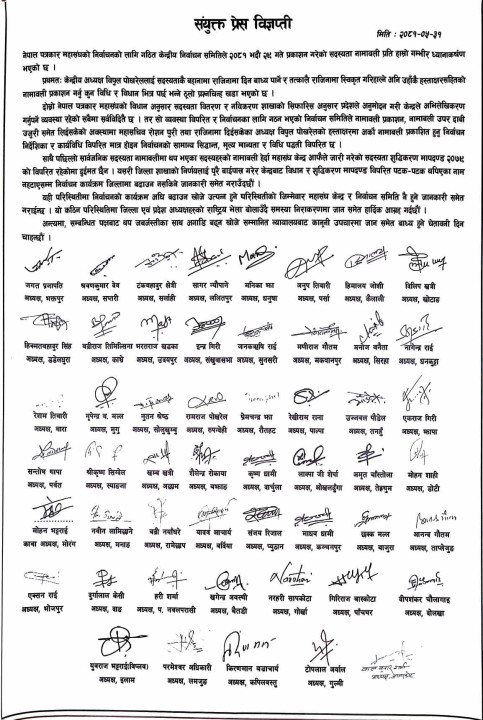 संयुक्त प्रेस विज्ञप्ती
मिति : २०८१-०५-३१
नेपाल पत्रकार महासंघको निर्वाचनको लागि गठित केन्द्रीय निर्वाचन समितिले २०८१ भदौ २९ गते प्रकाशन गरेको सदस्यता नामावली प्रति हाम्रो गम्भीर ध्यानाकर्षण
भएको छ ।
प्रथमतः केन्द्रीय अध्यक्ष विपुल पोखरेललाई सदस्यताकै बहानामा राजिनामा दिन बाध्य पार्ने र तत्कालै राजिनामा स्विकृत गरिहाल्ने अनि उहाँकै हस्ताक्षरसहितको
नामावली प्रकाशन गर्नु कुन विधि र विधान भित्र पाई भन्ने ठूलो प्रश्नचिन्ह खडा भएको छ ।
दोस्रो नेपाल पत्रकार महासंघको विधान अनुसार सदस्यता वितरण र नविकरण शाखाको सिफारिस अनुसार प्रदेशले अनुमोदन गरी केन्द्रले अभिलेखिकरण
गर्नुपर्ने व्यवस्था रहेको सबैमा सर्वविदितै छ । तर सो व्यवस्था विपरित र निर्वाचनका लागि गठन भएको निर्वाचन समितिले नामावली प्रकाशन, नामावली उपर दाबी
उजुरी समेत लिईसकेको अवस्थामा महासचिव रोशन पुरी तथा राजिनामा दिईसकेका अध्यक्ष विपुल पोखरेलको हस्ताक्षरमा अर्को नामावली प्रकाशित हुनु निर्वाचन
निर्देशिका र कार्यविधि विपरित मात्र होइन निर्वाचनको सामान्य सिद्धान्त, मूल्य मान्यता र विधि पद्धती विपरित छ ।
साथै पछिल्लो सार्वजनिक सदस्यता नामावलीमा थप भएका सदस्यहरुको नामावली हेर्दा महासंघ केन्द्र आफैले जारी गरेको सदस्यता शुद्धिकरण मापदण्ड २०७९
को विपरित रहेकोमा दुईमत छैन । यसरी जिल्ला शाखाको निर्णयलाई पूरै बाईपास गरेर केन्द्रबाट विधान र शुद्धिकरण मापदण्ड विपरित पटक-पटक थपिएका नाम
नहटाएसम्म निर्वाचन कार्यक्रम जिल्लामा बढाउन नसकिने जानकारी समेत गराउँदछौं ।
यही परिस्थितीमा निर्वाचनको कार्यक्रम अघि बढाउन खोजे उत्पन्न हुने परिस्थितीको जिम्मेवार महासंघ केन्द्र र निर्वाचन समिति नै हुने जानकारी समेत
गराईन्छ । यो कठिन परिस्थितिमा जिल्ला एवं प्रदेश अध्यक्षहरुको राष्ट्रिय भेला बोलाउँदै समस्या निराकरणमा जान समेत हार्दिक आग्रह गर्दछौं ।
अन्त्यमा, सम्बन्धित पक्षबाट थप जबर्जस्तीका साथ अगाडि बढ्न खोजे सम्मानित न्यायालयबाट कानूनी उपचारमा जान समेत बाध्य हुने चेतावनी दिन
चाहन्छौं ।
जगत प्रजापति श्रवणकुमार देव टंकबहादुर क्षेत्री सागर न्यौपाने मनिका झा अनुप तिवारी हिमालय जोशी दिलिप खत्री
अध्यक्ष, भक्तपुर अध्यक्ष, सप्तरी अध्यक्ष, सर्लाही अध्यक्ष, ललितपुर अध्यक्ष, धनुषा अध्यक्ष, पर्सा अध्यक्ष, कैलाली अध्यक्ष, खोटाङ
हिक्मतबहादुर सिंह बद्रीराज तिमिल्सिना भरतराज खड्का इन्द्र गिरी जनकऋषि राई मणीराज गौतम मनोज बनैता नागेन्द्र राई
अध्यक्ष, डडेलधुरा अध्यक्ष, काभ्रे अध्यक्ष, उदयपुर अध्यक्ष, संखुवासभा अध्यक्ष, सुनसरी अध्यक्ष, मकवानपुर अध्यक्ष, सिरहा अध्यक्ष, धनकुटा
रेशम तिवारी नृपेन्द्र ब. मल्ल नुतन श्रेष्ठ रामराज पोखरेल प्रेमचन्द्र झा रेखीराम राना उज्जवल पौडेल एकराज गिरी
अध्यक्ष, बारा अध्यक्ष, मुगु अध्यक्ष, सोलुखुम्बु अध्यक्ष, रुपन्देही अध्यक्ष, रौतहट अध्यक्ष, पाल्पा अध्यक्ष, तनहुँ अध्यक्ष, झापा
सन्तोष थापा श्रीकृष्ण सिग्देल खम्ब खत्री शैलेन्द्र रोकाया कृष्ण धामी लाक्पा जी शेर्पा अमृत बाँस्तोला मोहन शाही
अध्यक्ष, पर्वत अध्यक्ष, स्याङजा अध्यक्ष, अछाम अध्यक्ष, बझाङ अध्यक्ष, दार्चुला अध्यक्ष, ओखलढुंगा अध्यक्ष, तेह्रथुम अध्यक्ष, डोटी
मोहन भट्टराई नवीन लामिछाने बद्री नर्याघरे यादव आचार्य संजय रिजाल माधव धामी छत्रक मल्ल आनन्द गौतम
काबा अध्यक्ष, मोरंग अध्यक्ष, मनाङ अध्यक्ष, रामेछाप अध्यक्ष, बर्दिया अध्यक्ष, प्युठान अध्यक्ष, कञ्चनपुर अध्यक्ष, बाजुरा अध्यक्ष, ताप्लेजुङ
एक्सन राई दुर्गालाल केसी हरी शर्मा खगेन्द्र अवस्थी नरहरी सापकोटा गिरिराज बास्कोटा दीपशंकर चौलागाई
अध्यक्ष, भोजपुर अध्यक्ष, दाङ अध्यक्ष, प. नवलपरासी अध्यक्ष, बैतडी अध्यक्ष, गोर्खा अध्यक्ष, पाँचथर अध्यक्ष, दोलखा
युवराज भट्टराई(विप्लव) परमेश्वर अधिकारी किरणमान बज्राचार्य टोपलाल अर्याल
अध्यक्ष, इलाम अध्यक्ष, लमजुङ अध्यक्ष, कपिलवस्तु अध्यक्ष, गुल्मी